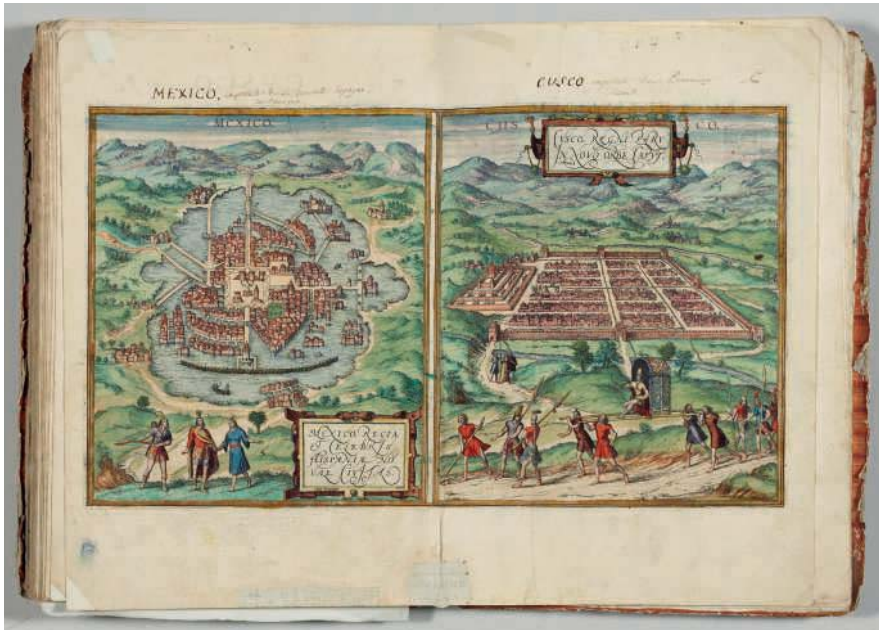 MEXICO,
CUSCO
MEXICO.
CUS CO.
CUSCO, REGNI PERV
IN NOVO ORBE CAPVT.
MEXICO, REGIA
ET CELEBRIS
HISPANIÆ NO
VAE CIVITAS